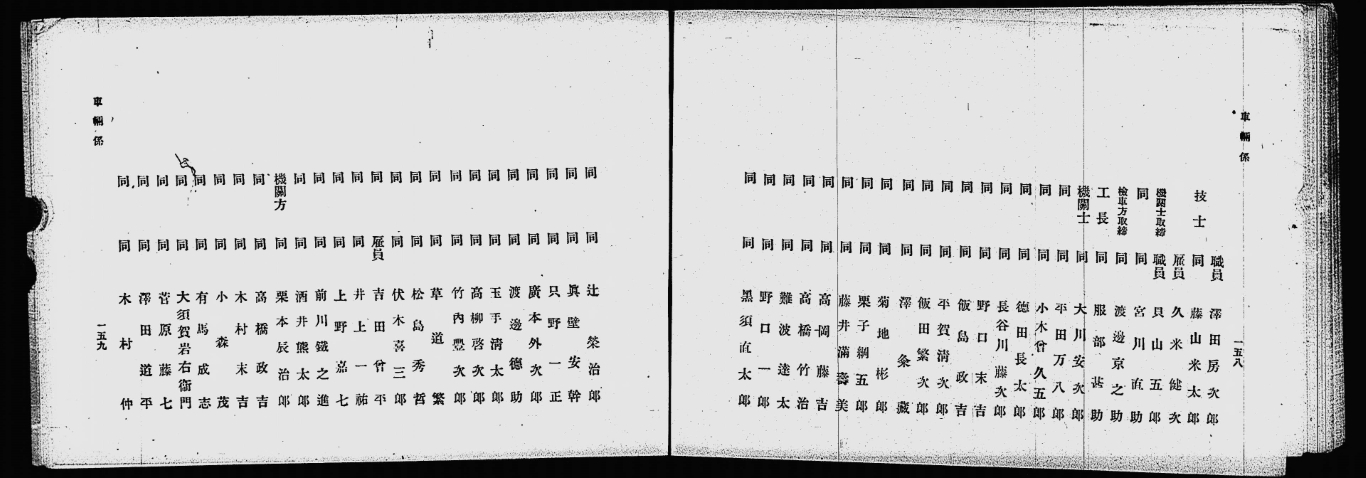 車輛係
職員 澤田房次郎
技士 同 藤山米太郎
雇員 久米健次
機關士取締 職員 貝山五郎
同 同 宮川直助
檢車方取締 同 渡邊京之助
工長 同 服部甚助
機關士 同 大川安次郎
同 同 平田万八郎
同 同 小木曾久五郎
同 同 德田長太郎
同 同 長谷川藤次郎
同 同 野口末吉
同 同 飯島政吉
同 同 平賀清次郎
同 同 飯田繁次郎
同 同 澤粂藏
同 同 菊地彬郎
同 同 栗子綱五郎
同 同 藤井滿壽美
同 同 高岡藤吉
同 同 高橋竹治
同 同 難波逵太
同 同 野口一郎
同 同 黑須直太郎
一五八
同 同 辻榮治郎
同 同 眞壁安幹
同 同 只野一正
同 同 廣本外次郎
同 同 渡邊德助
同 同 玉手清太郎
同 同 高柳啓次郎
同 同 竹內豊次郎
同 同 草道繁
同 同 松島秀哲
同 同 伏木喜三郎
同 雇員 吉田曾平
同 同 井上一祐
同 同 上野嘉七
同 同 前川鐵之進
同 同 酒井熊太郎
機關方 同 栗本辰治郎
同 同 高橋政吉
同 同 木村末吉
同 同 小森茂
同 同 有馬成志
同 同 大須賀岩右衞門
同 同 菅原藤七
同 同 澤田道平
同 同 木村仲
車輛係
一五九